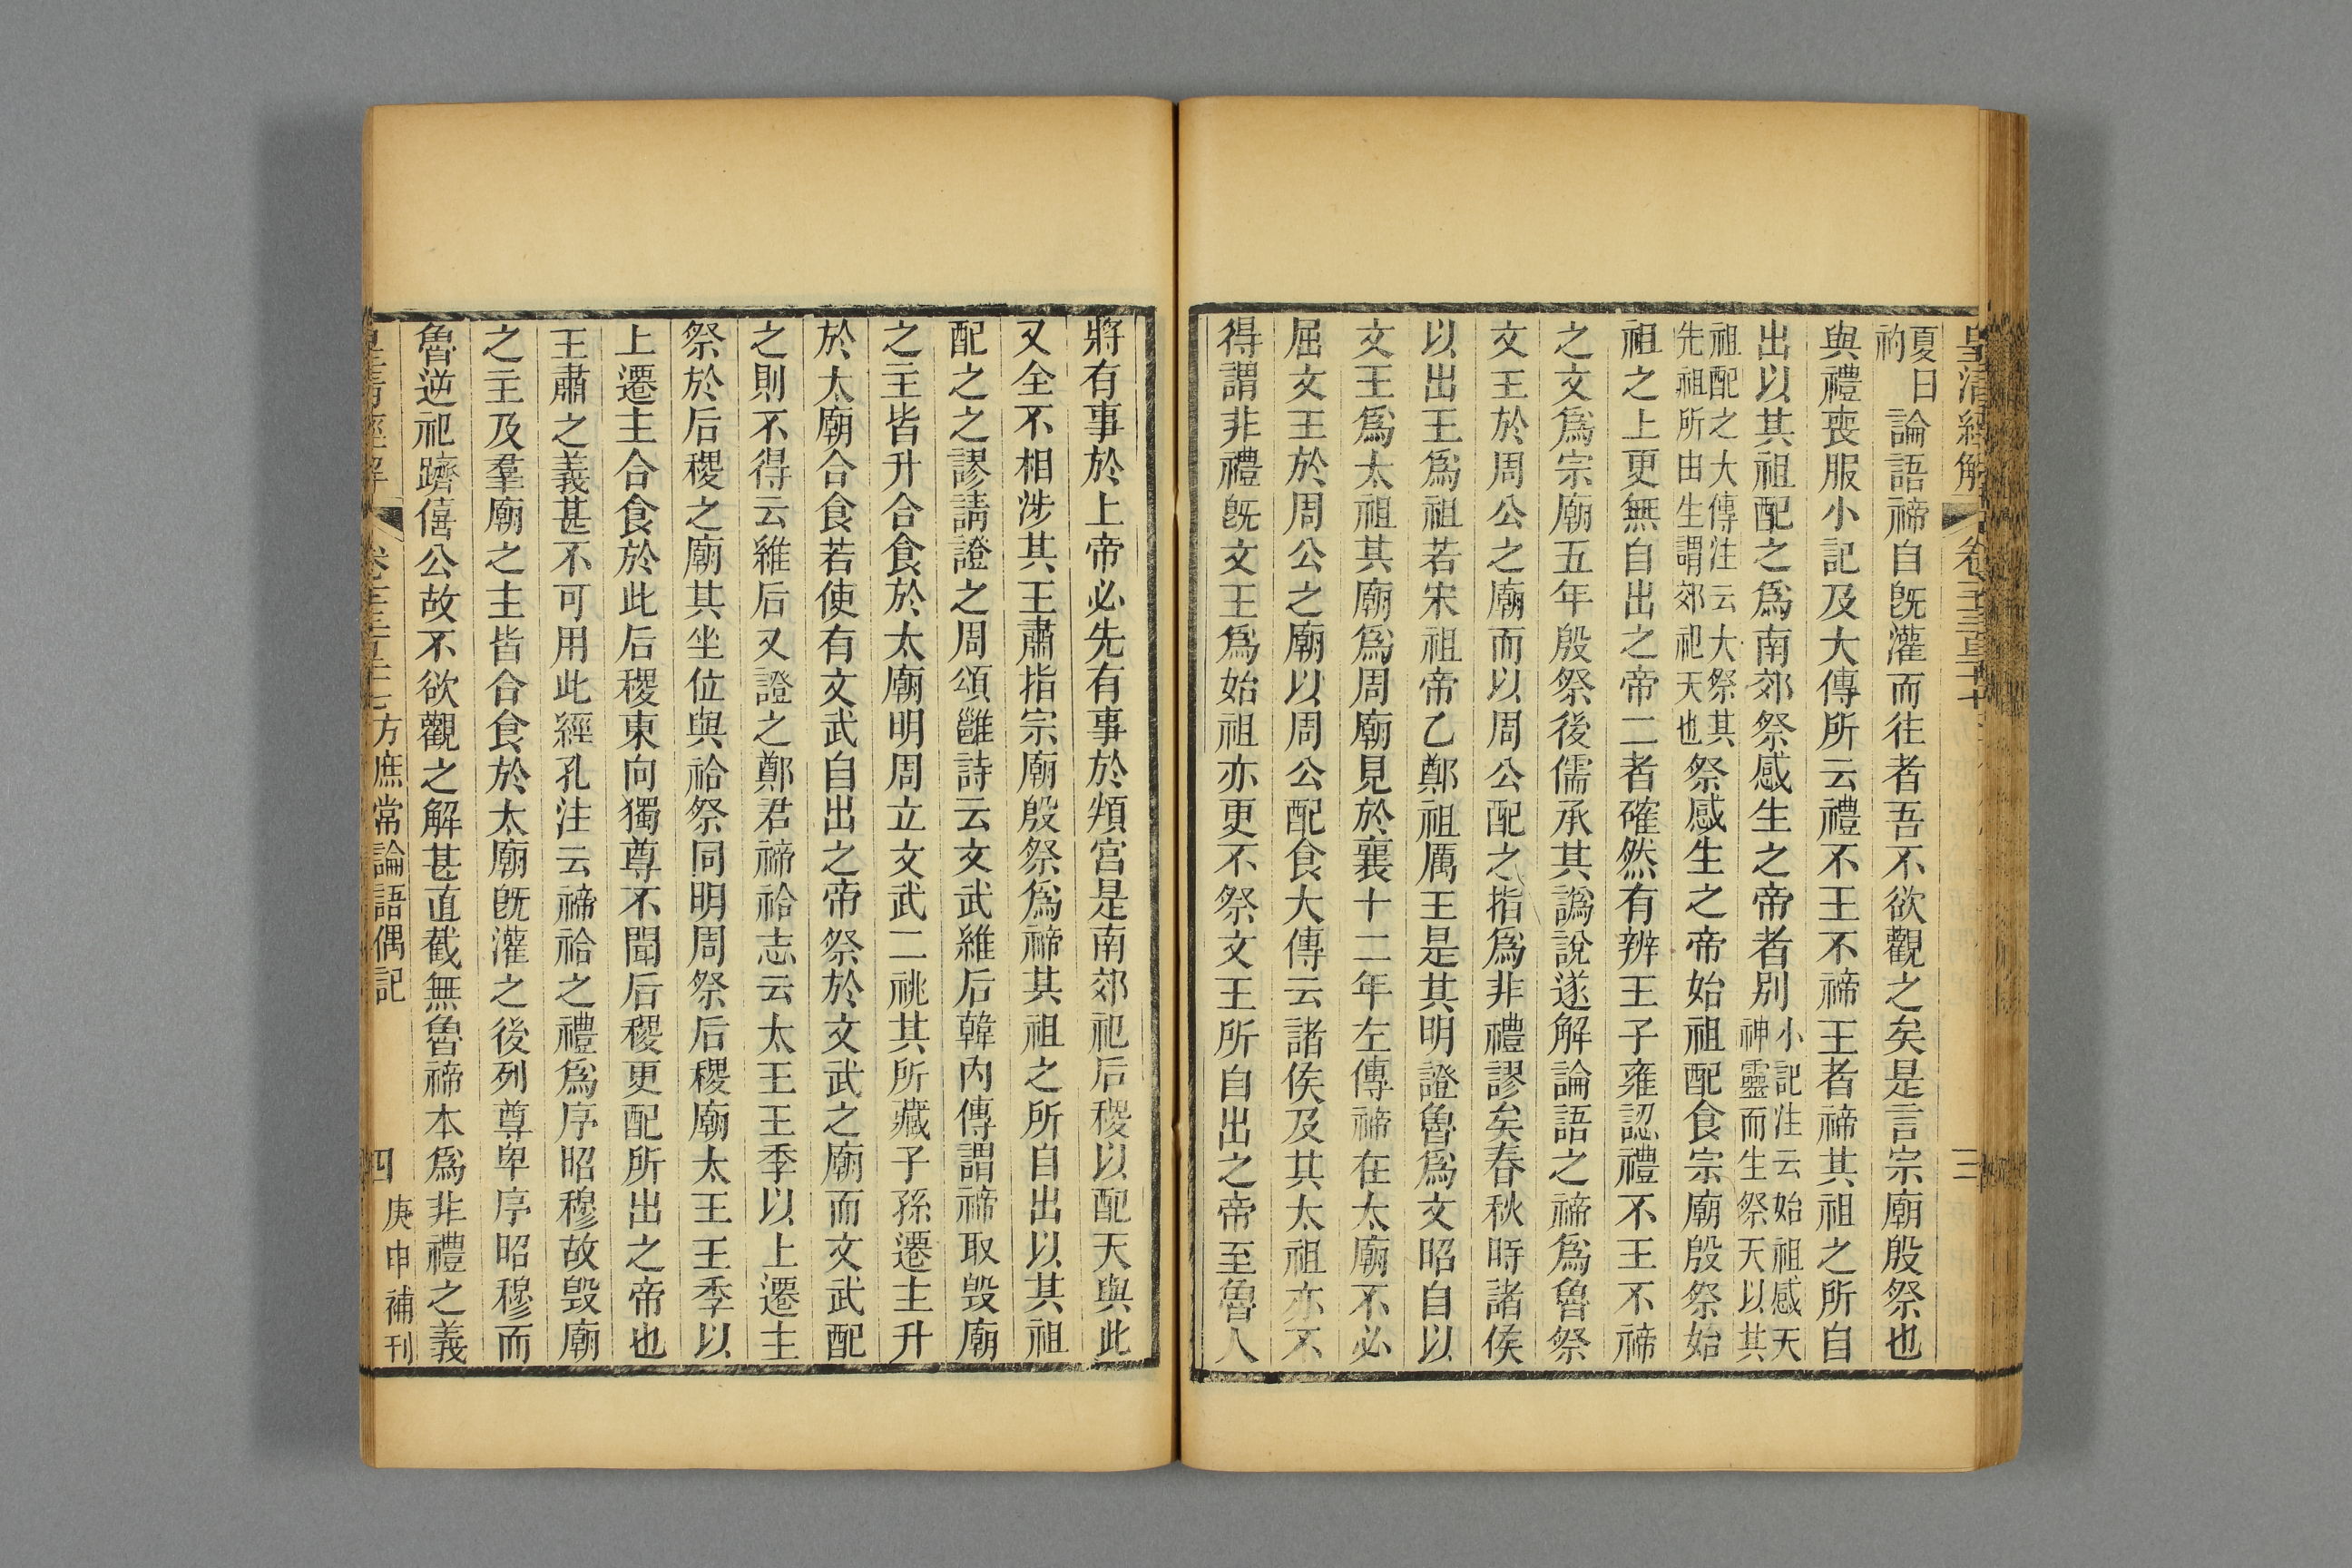 皇清經解
卷一千三百二十
三
夏曰
礿
論語禘自既灌而往者吾不欲觀之矣是言宗廟殷祭也
與禮喪服小記及大傳所云禮不王不禘王者禘其祖之所自
出以其祖配之爲南郊祭感生之帝者別
小記注云始祖感天
神靈而生祭天以其
祖配之大傳注云大祭其
先祖所由生謂郊祀天也
祭感生之帝始祖配食宗廟殷祭始
祖之上更無自出之帝二者確然有辨王子雍認禮不王不禘
之文爲宗廟五年殷祭後儒承其譌說遂解論語之禘爲魯祭
文王於周公之廟而以周公配之指爲非禮謬矣春秋時諸侯
以出王爲祖若宋祖帝乙鄭祖厲王是其明證魯爲文昭自以
文王爲太祖其廟爲周廟見於襄十二年左傳禘在太廟不必
屈文王於周公之廟以周公配食大傳云諸侯及其太祖亦不
得謂非禮既文王爲始祖亦更不祭文王所自出之帝至魯人
將有事於上帝必先有事於頖宮是南郊祀后稷以配天與此
又全不相涉其王肅指宗廟殷祭爲禘其祖之所自出以其祖
配之之謬請證之周頌雝詩云文武維后韓內傳謂禘取毀廟
之主皆升合食於太廟明周立文武二祧其所藏子孫遷主升
於太廟合食若使有文武自出之帝祭於文武之廟而文武配
之則不得云維后又證之鄭君禘祫志云太王王季以上遷主
祭於后稷之廟其坐位與祫祭同明周祭后稷廟太王王季以
上遷主合食於此后稷東向獨尊不聞后稷更配所出之帝也
王肅之義甚不可用此經孔注云禘祫之禮爲序昭穆故毀廟
之主及羣廟之主皆合食於太廟既灌之後列尊卑序昭穆而
魯逆祀躋僖公故不欲觀之解甚直截無魯禘本爲非禮之義
皇清經解
方庶常論語偶記
四
庚申補刊